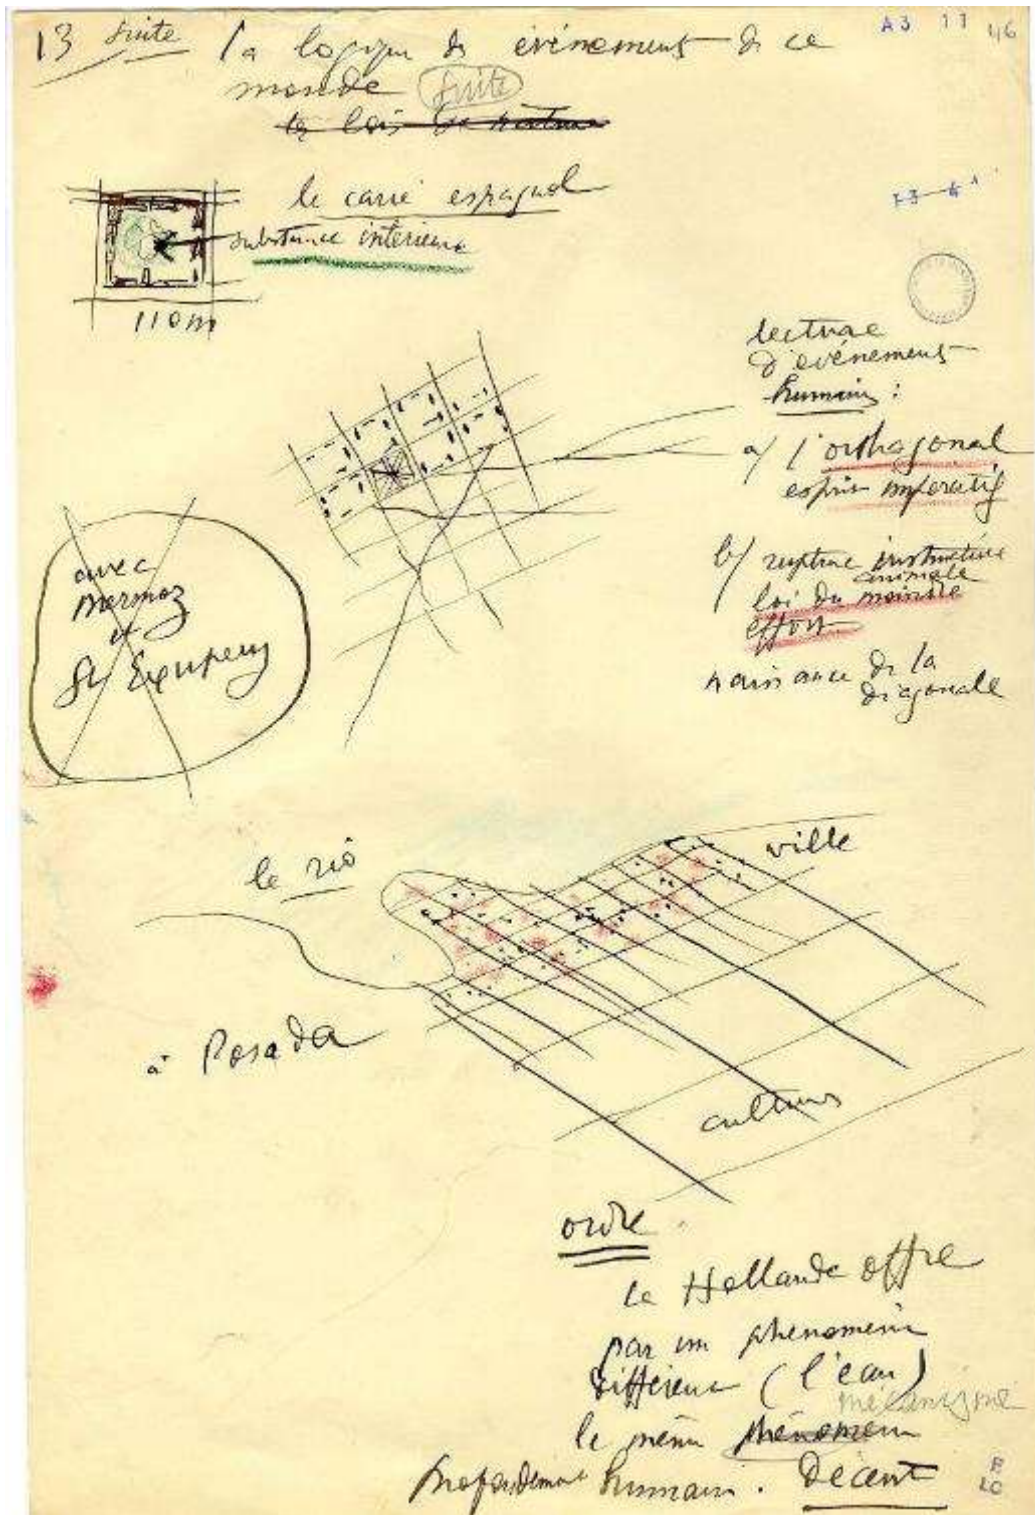 13 suite
A3 11 46
la logique des événements de ce
monde suite
les lois de nature
le carré espagnol
substance intérieure
110 m
lecture
d'événements
humains :
a/ l'orthogonal
esprit impératif
b/ rupture instinctive
animale
loi du moindre
effort
naissance de la
diagonale
avec
Mermoz
et
St Exupery
le rio
ville
à Posada
cultures
ordre
la Hollande offre
par un phénomène
différent (l'eau)
mécanisme
le même phénomène
profondément humain. Décent